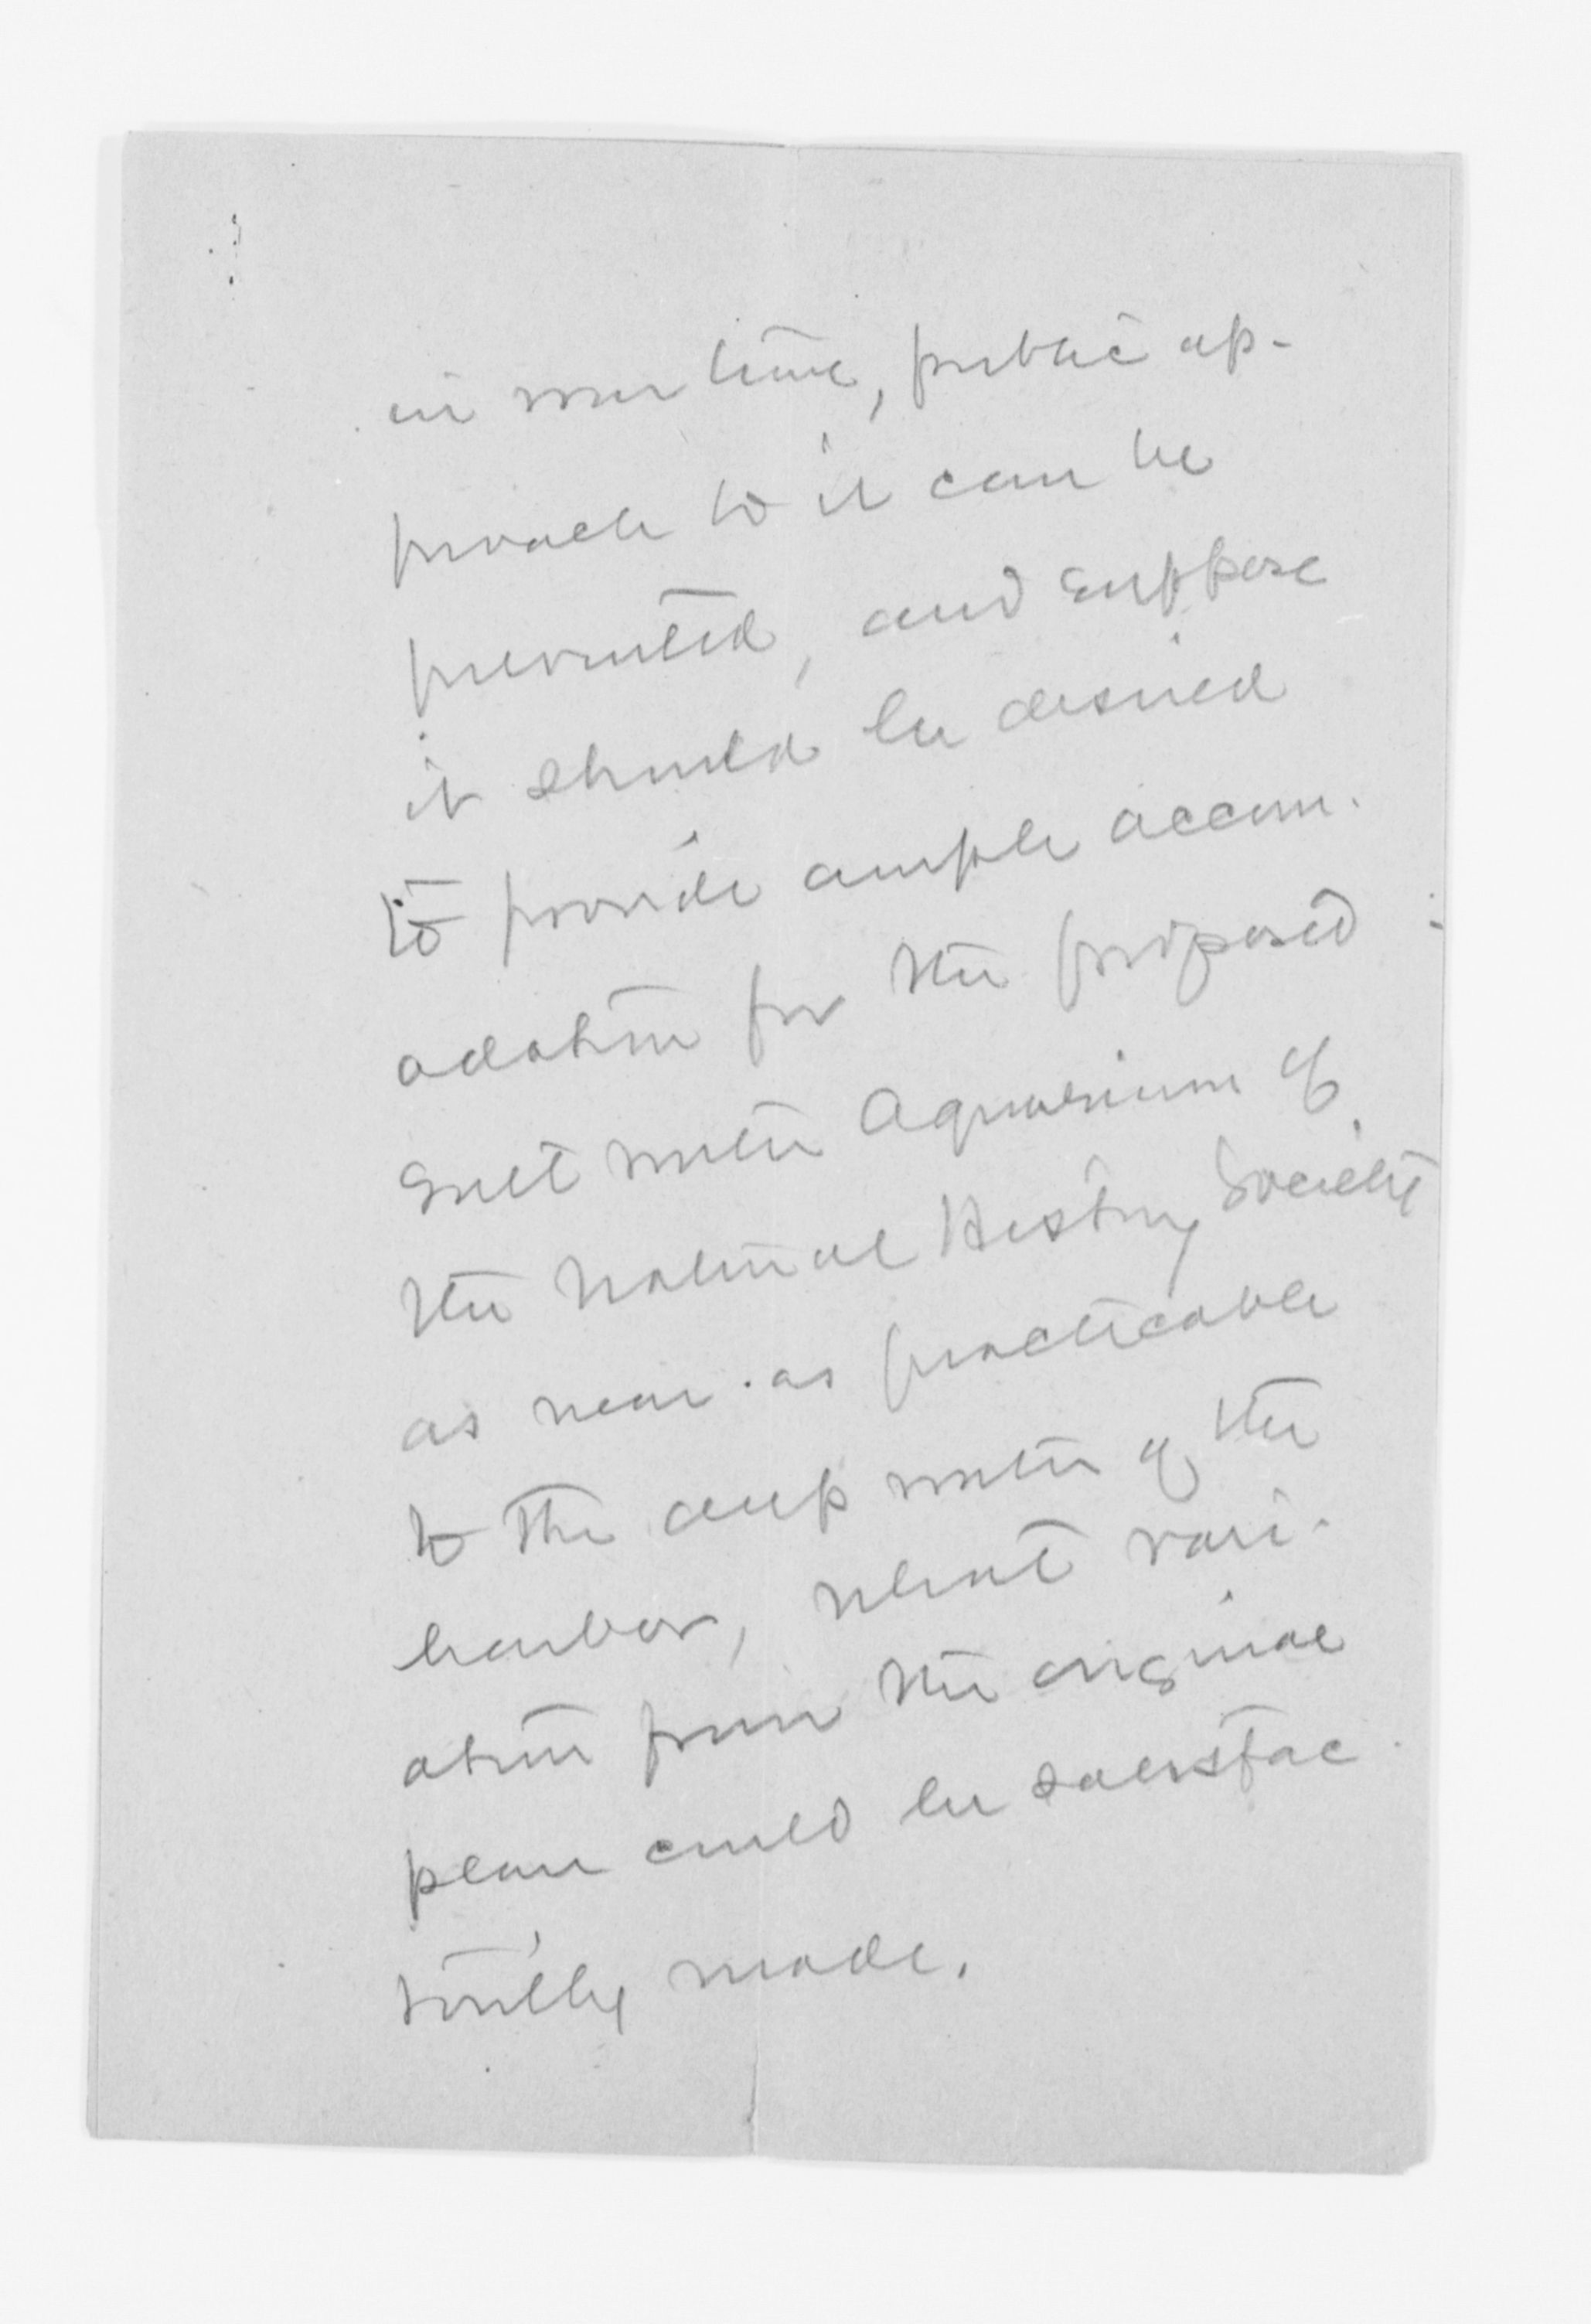 in war time, public ap-
proach to it can be
prevented, and suppose
it should be desired
to provide ample accom-
odation for the proposed
Salt water Aquarium of
the Natural History Society
as near as practicable
to the deep water of the
harbor, what vari-
ation from the original
plan could be satisfac-
torily made.